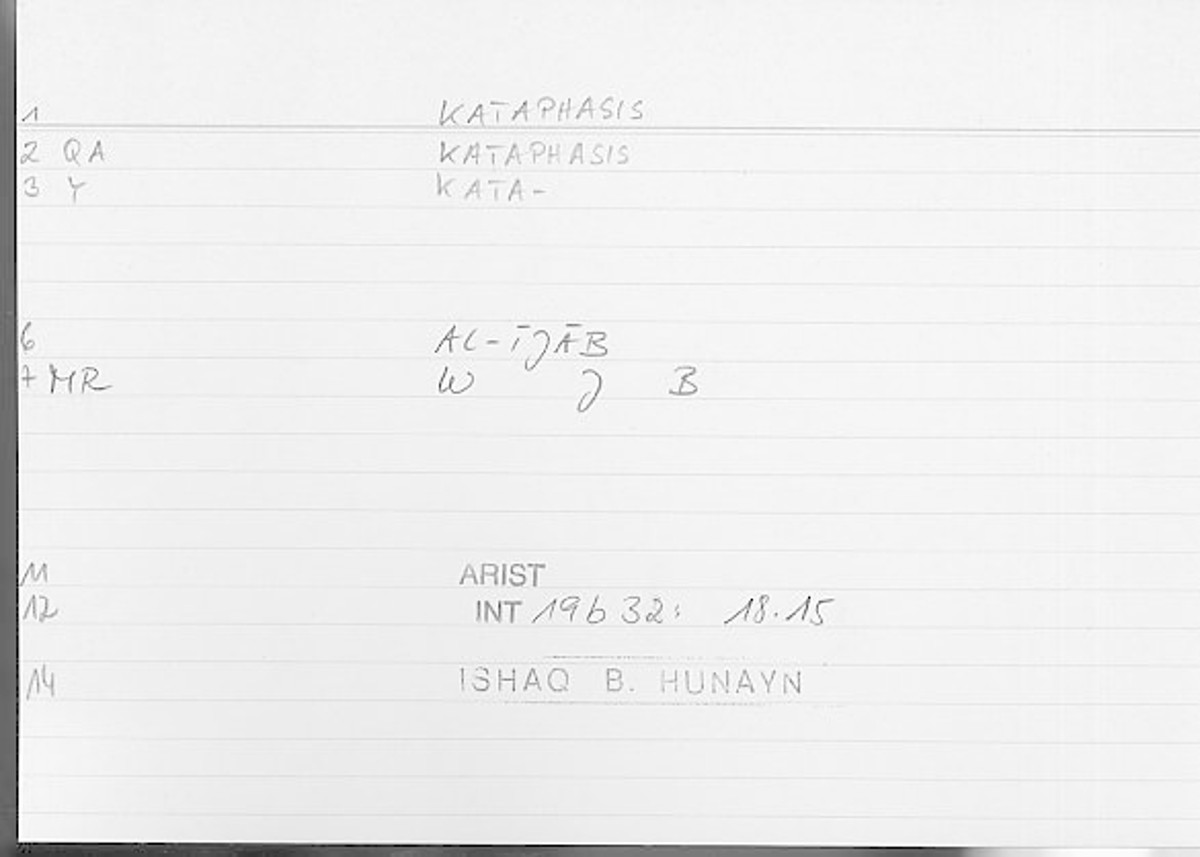 1 KATAPHASIS
2 QA KATAPHASIS
3 Y KATA-
6 AL-ĪJĀB
7 MR W J B
11 ARIST
12 INT 19b 32: 18.15
14 ISHAQ B. HUNAYN